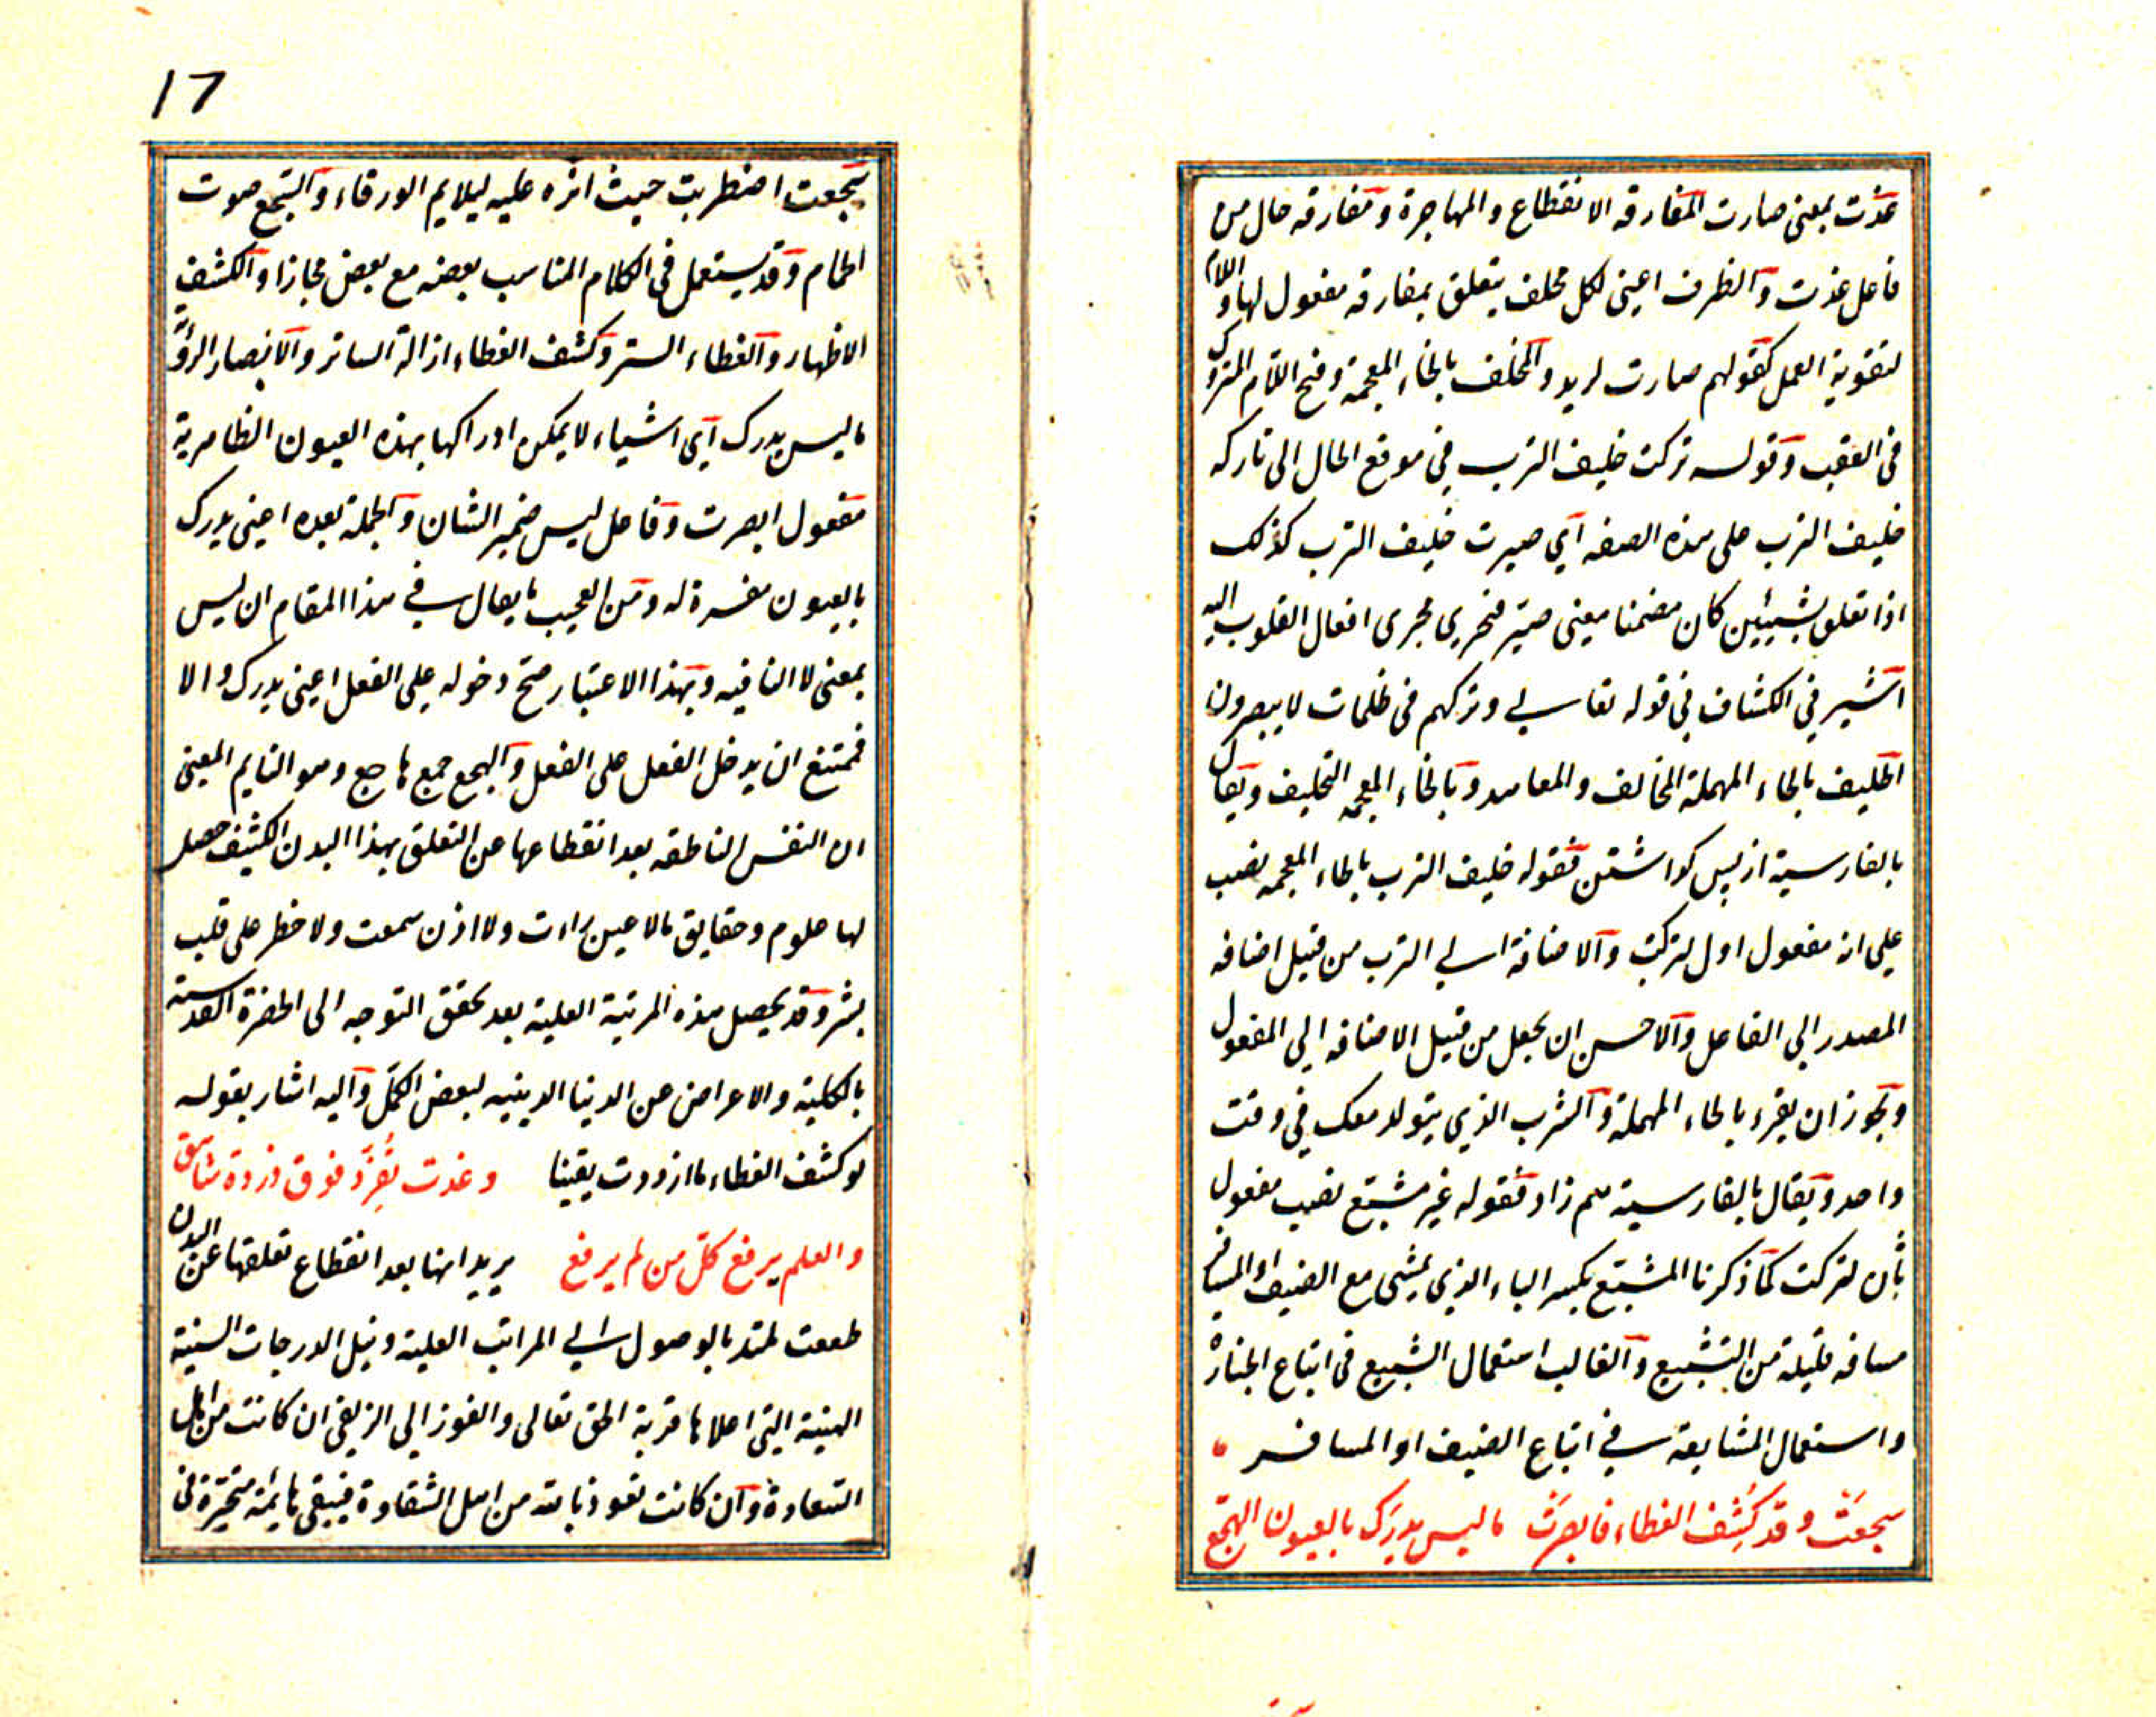 غدت بمعنى صارت المفارقه الانقطاع والمهاجرة ومفارقه حال من
فاعل غدت والظرف اعنى لكل مخلف يتعلق بمفارقه مفعول لها واللام
لتقوية العمل كقولهم صارت لزيد والمخلف بالخاء المعجمة وفتح اللام المتروك
فى العقب وقوله تركت خليف الترب فى موقع الحال الى تاركه
خليف الترب على هذه الصفه اى صيرت خليف الترب كذلك
اذا تعلق بشيئين كان مضمنا معنى صير فتجرى مجرى افعال القلوب اليه
اشير فى الكشاف فى قوله تعالى وتركهم فى ظلمات لا يبصرون
الحليف بالحاء المهملة المخالف والمعاهد وبالخاء المعجمه التخليف ويقال
بالفارسية از پس كواشتن فقوله خليف الترب بالخاء المعجمه نصب
على انه مفعول اول لتركت والاضافة الى الترب من قبيل اضافه
المصدر الى الفاعل والاحسن ان يجعل من قبيل الاضافه الى المفعول
ويجوز ان يقرء بالحاء المهملة والترب الذى يتولد معك فى وقت
واحد ويقال بالفارسية هم زاد فقوله غير مشيع نصب مفعول
ثان لتركت كما ذكرنا المشيع بكسر الياء الذى يمشى مع الضيف او المسافر
مسافه قليلة من التشييع والغالب استعمال التشييع فى اتباع الجنازة
واستعمال المشايعة فى اتباع الضيف او المسافر
سجعت وقد كشف الغطاء فابصرت ما ليس يدرك بالعيون الهجع
17
سجعت اضطربت حيث اثره عليه ليلايم الورقاء والسجع صوت
الحمام وقد يستعمل فى الكلام المناسب بعضه مع بعض مجازا والكشف
الاظهار والغطاء الستر وكشف الغطاء ازالة الساتر والابصار الرؤية
ما ليس يدرك اى اشياء لا يمكن ادراكها بهذه العيون الظاهرية
مفعول ابصرت وفاعل ليس ضمير الشان والجملة بعده اعنى يدرك
بالعيون مفسرة له ومن العجيب ما يقال فى هذا المقام ان ليس
بمعنى لا النافيه وبهذا الاعتبار صح دخوله على الفعل اعنى يدرك والا
فممتنع ان يدخل الفعل على الفعل والهجع جمع هاجع وهو النايم المعنى
ان النفس الناطقه بعد انقطاعها عن التعلق بهذا البدن الكثيف حصل
لها علوم وحقايق ما لا عين رات ولا اذن سمعت ولا خطر على قلب
بشر وقد يحصل هذه المرتبة العلية بعد تحقق التوجه الى الحضرة القدسية
بالكلية والاعراض عن الدنيا الدينيه لبعض الكمل واليه اشار بقوله
لو كشف الغطاء ما ازددت يقينا وغدت تغرد فوق ذروة شاهق
والعلم يرفع كل من لم يرفع يريد انها بعد انقطاع تعلقها عن البدن
طمعت بالوصول الى المراتب العلية ونيل الدرجات السنية
الهنية التى اعلاها قربة الحق تعالى والفوز الى الزلفى ان كانت من اهل
السعادة وان كانت نعوذ بالله من اهل الشقاوة فيبقى هائمة متحيرة فى